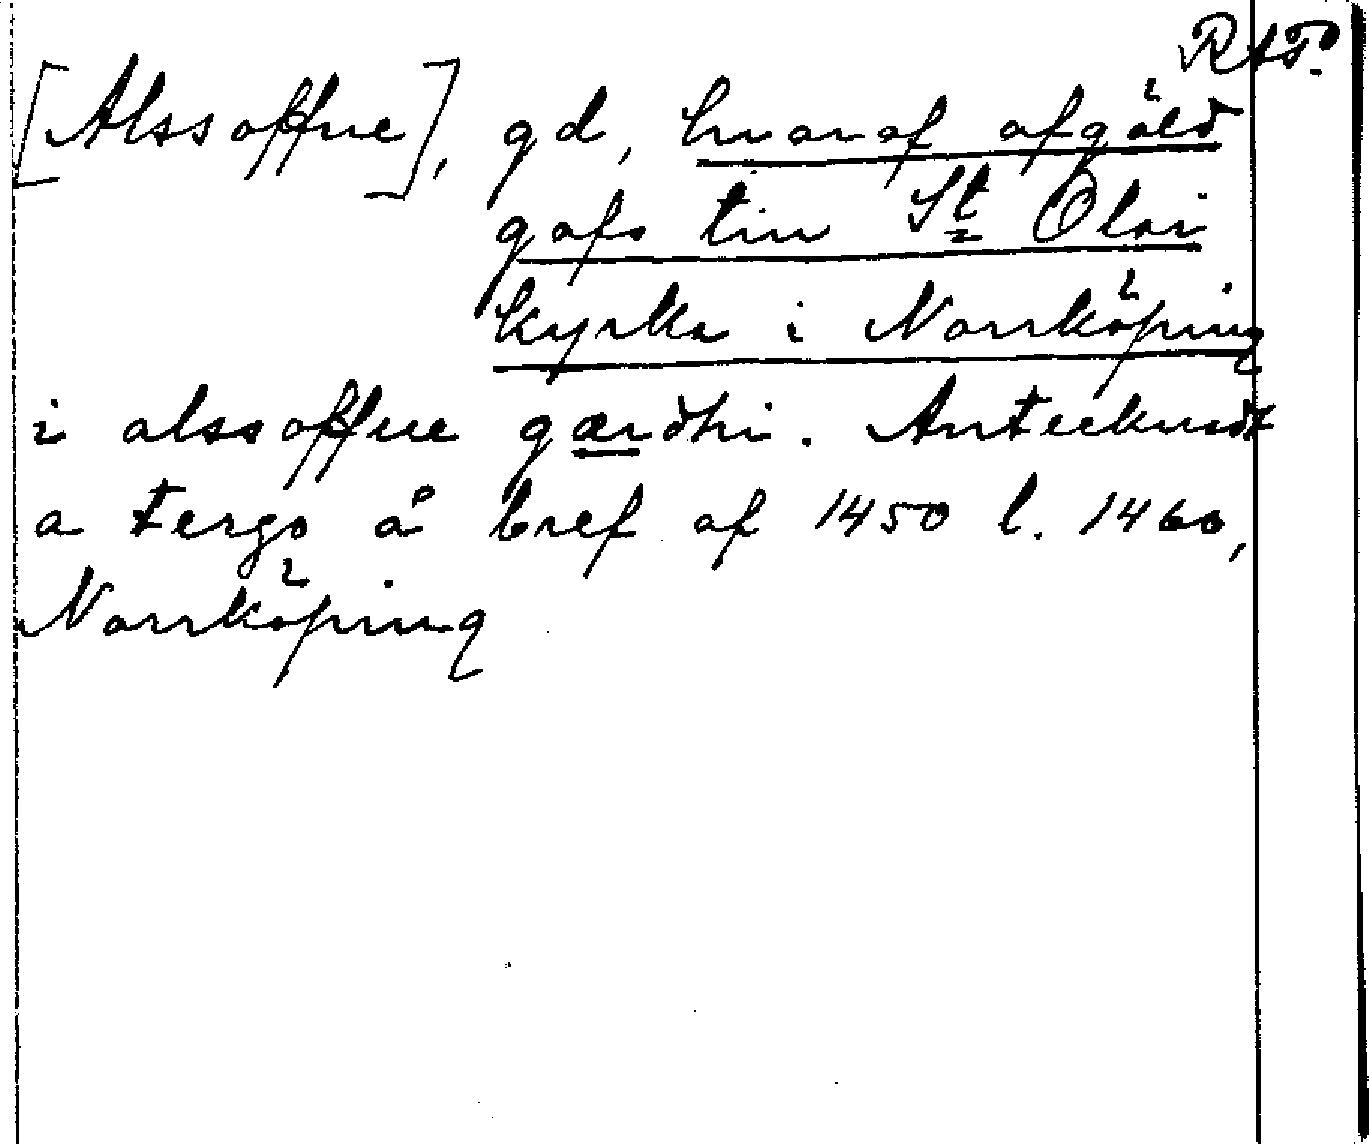 RAP.
[Alssoffue], gd, hvaraf afgäld
gafs till St Olai
kyrka i Norrköping
i alssoffue gærdhi. Antecknadt
a tergo å bref af 1450 l. 1460,
Norrköping